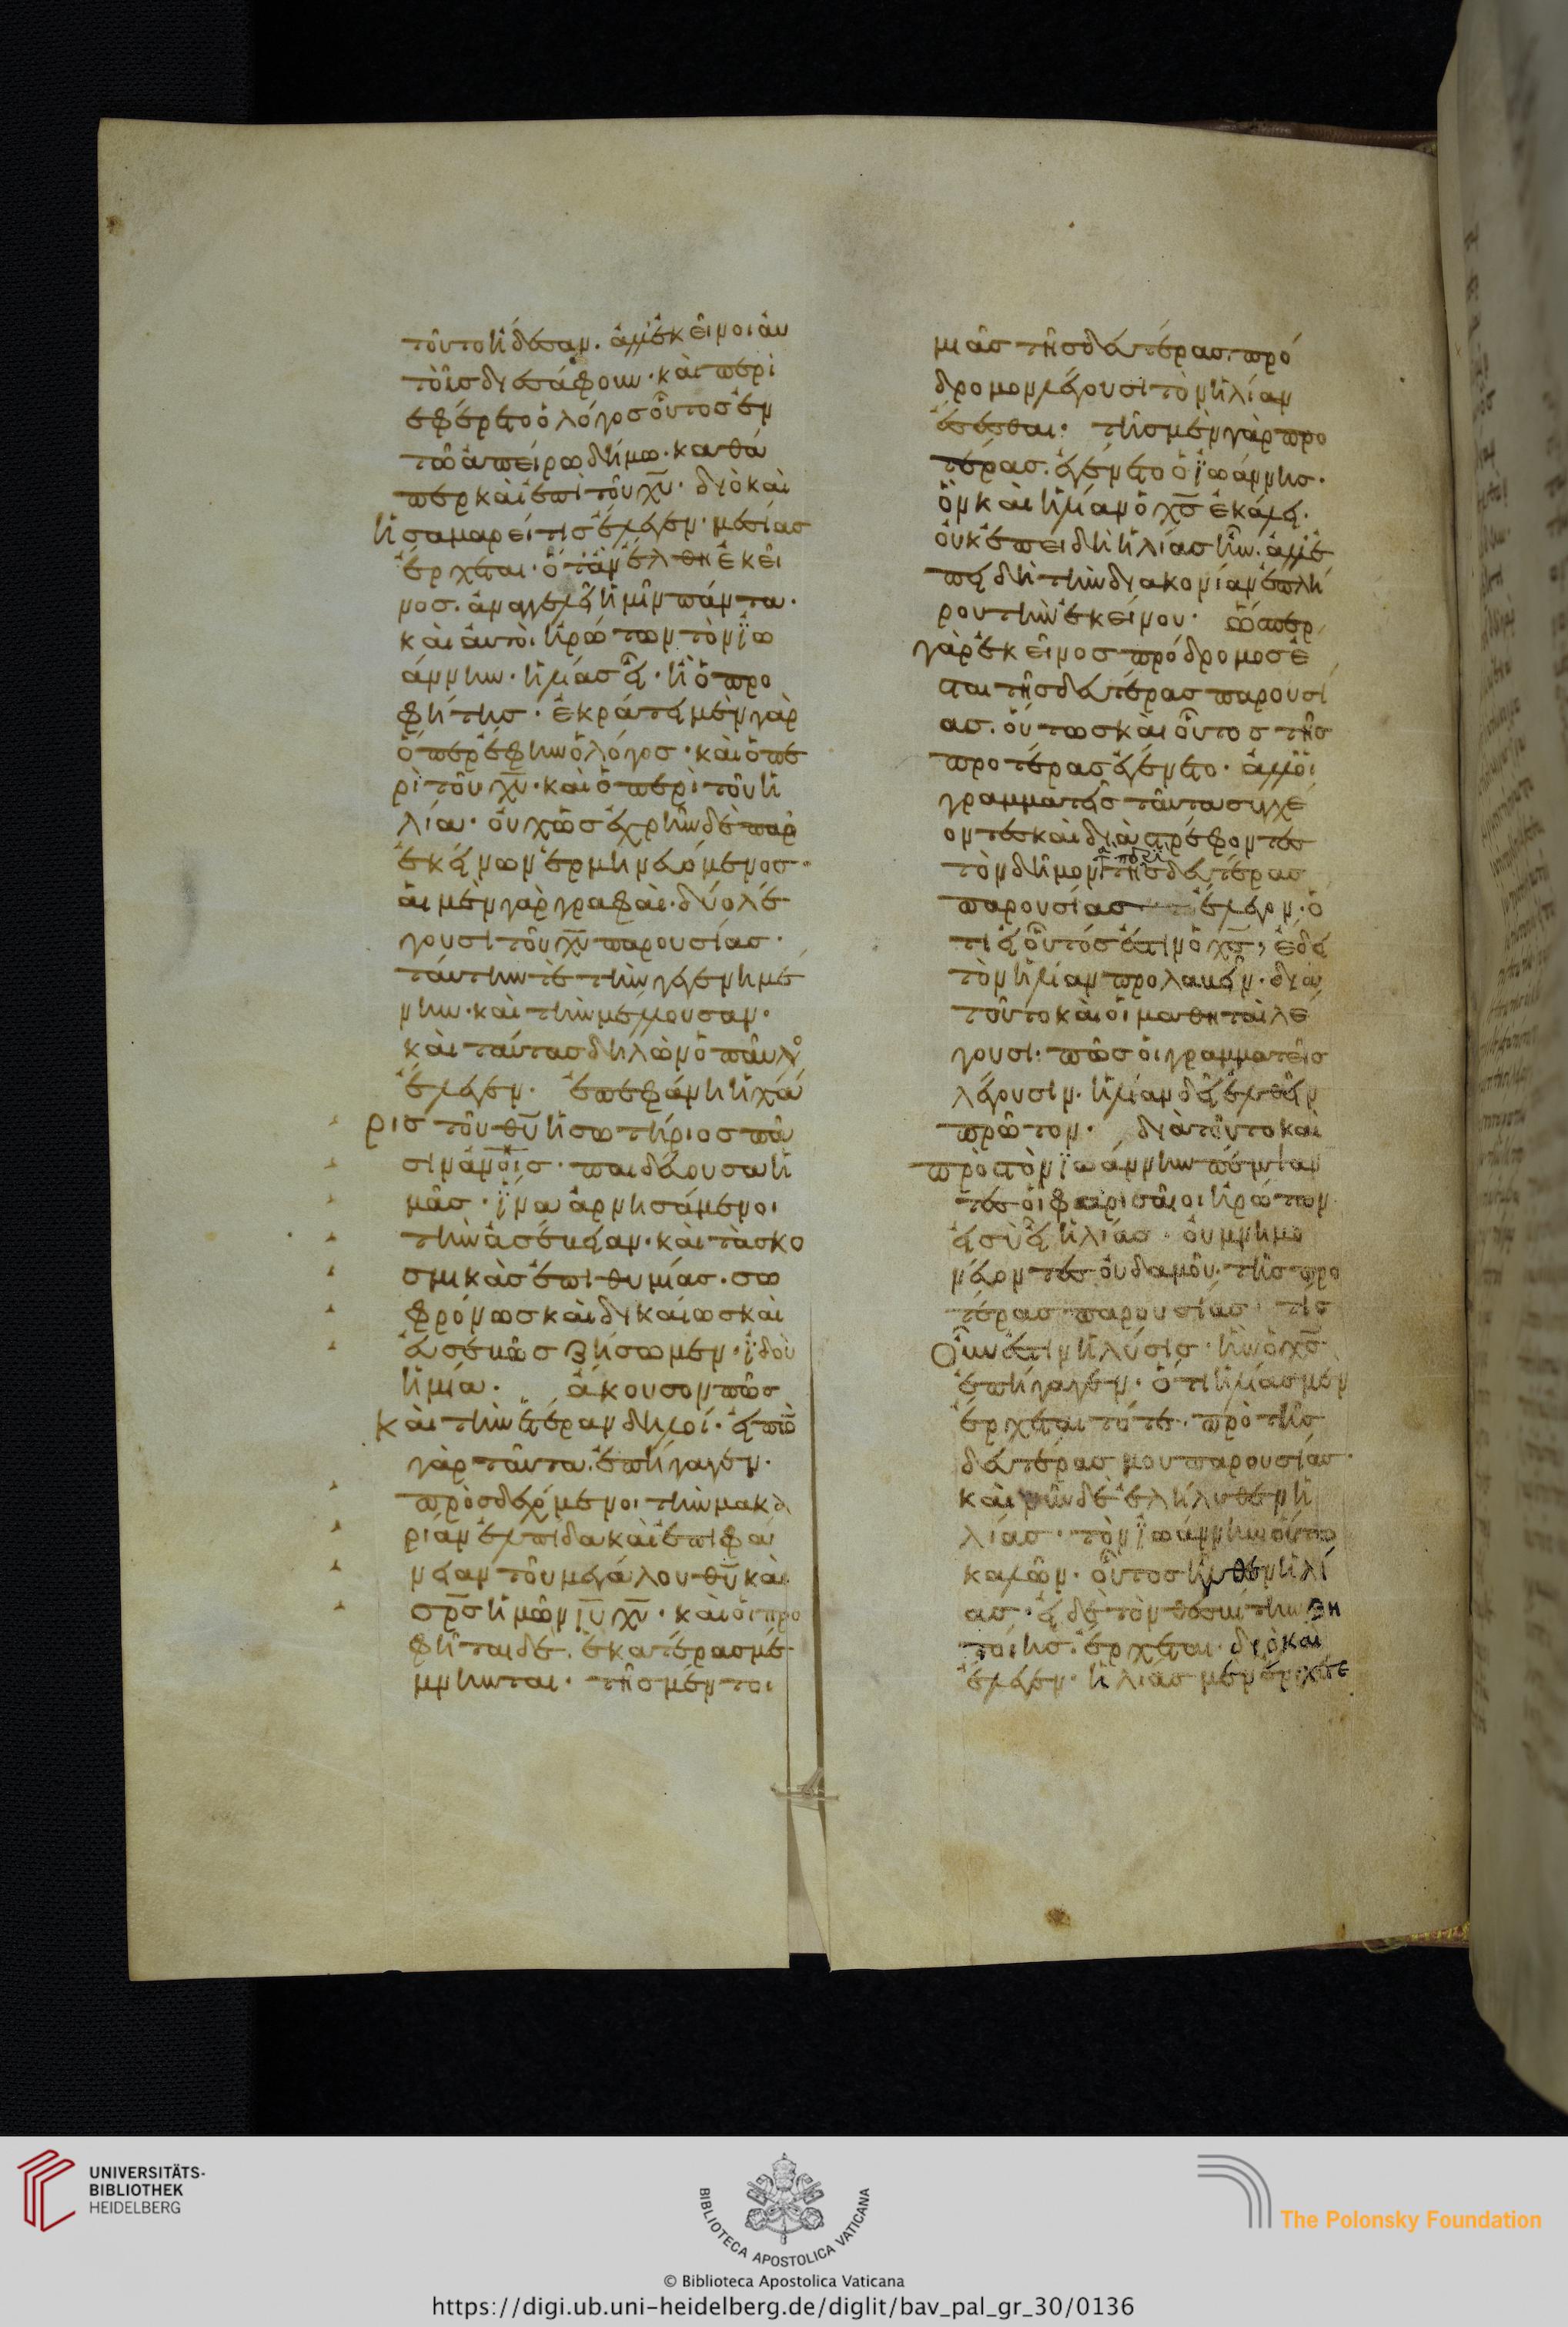 τοῦτο ἤδεσαν. ἀλλ' ἐκεῖνοι αὐ
τοῖς διεσάφουν· καὶ περὶ
εφέρετο ὁ λόγος οὗτος ἐν
τῶ ἀπείρω δήμω· καθά
περ καὶ ἐπὶ τοῦ χ̅υ̅· διὸ καὶ
ἡ σαμαρεῖτις ἔλεγεν· μεσίας
ἔρχεται· ὅταν ἔλθη ἐκεῖ
νος. ἀναγγελεῖ ἡμῖν πάντα·
καὶ αὐτοὶ ἠρώτων τὸν ϊω
άννην· ἡλίας εἶ· ἢ ὁ προ
φήτης· ἐκράτει μὲν γὰρ
ὅπερ ἔφην ὁ λόγος· καὶ ὁ πε
ρὶ τοῦ χ̅υ̅· καὶ ὁ περὶ τοῦ ἡ
λία· οὐχ ὡς ἐχρῆν δὲ παρ'
ἐκείνων ἑρμηνευόμενος·
αἱ μὲν γὰρ γραφαὶ· δύο λέ
γουσι τοῦ χ̅υ̅ παρουσίας·
ταύτην τὲ τὴν γεγενημέ
νην· καὶ τὴν μέλλουσαν·
καὶ ταύτας δηλῶν ὁ παῦλο
ἔλεγεν· ἐπεφάνη ἡ χά
ρις τοῦ θ̅υ̅ ἡ σωτήριος πᾶ
σιν ἀν̅οις· παιδεύουσα ἡ
μᾶς· ἵνα ἀρνησάμενοι
τὴν ἀσέβειαν· καὶ τὰς κο
σμικὰς ἐπιθυμίας· σω
φρόνως καὶ δικαίως καὶ
εὐσεβῶς ζήσωμεν· ϊδοὺ
ἡ μία· ἄκουσον πῶς
καὶ τὴν ἑτέραν δηλοῖ· εἰπὼ
γὰρ ταῦτα. ἐπήγαγεν·
προσδεχόμενοι τὴν μακα
ρίαν ἐλπίδα καὶ ἐπιφά
νειαν τοῦ μεγάλου θ̅υ̅ καὶ
σ̅ρ̅ς ἡμῶν ι̅υ̅ χ̅υ̅· καὶ οἱ προ
φῆται δὲ. ἑκατέρας μέ
μνηνται· τῆς μέντοι
μιᾶς τῆς δευτέρας. πρό
δρομον λέγουσι τὸν ἡλίαν
ἔσεσθαι· τῆς μὲν γὰρ προ
τέρας. ἐγένετο ὁ ϊωάννης·
ὃν καὶ ἡλίαν ὁ χ̅ς̅ ἐκάλει·
οὐκ ἐπειδὴ ἡλίας ἦν. ἀλλ' ἐ
πειδὴ τὴν διακονίαν ἐπλή
ρου τὴν ἐκείνου· ὥσπερ
γὰρ ἐκεῖνος πρόδρομος ἔ
σται τῆς δευτέρας παρουσί
ας. οὕτως καὶ οὗτος τῆς
προτέρας ἐγένετο· ἀλλ' οἱ
γραμματεῖς ταῦτα συγχέ
οντες καὶ διαστρέφοντες
τὸν δῆμον τῆς δευτέρας
παρουσίας ἔλεγον· ὅ
τι εἰ οὗτός ἐστιν ὁ χ̅ς̅, ἔδει
τὸν ἡλίαν προλαβεῖν· διὰ
τοῦτο καὶ οἱ μαθηταὶ λέ
γουσι· πῶς οἱ γραμματεῖς
λέγουσιν· ἡλίαν δεῖ ἐλθεῖν
πρῶτον· διὰ τοῦτο καὶ
πρὸς τὸν ϊωάννην πέμψαν
τες οἱ φαρισαῖοι ἠρώτων
εἰ σὺ εἶ ἡλίας· οὐ μνημο
νεύοντες οὐδαμοῦ· τῆς προ
τέρας παρουσίας τίς
οὖν ἐστιν ἡ λύσις· ἣν ὁ χ̅ς̅
ἐπήγαγεν· ὅτι ἡλίας μὲν
ἔρχεται τότε. πρὸ τῆς
δευτέρας μου παρουσίας·
καὶ νῦν δὲ ἐλήλυθεν ἡ
λίας· τὸν ϊωάννην οὕτω
καλῶν· οὗτος ἦλθεν ἡλί
ας· εἰ δὲ τὸν θεσβίτην ζη
τοίης. ἔρχεται· διὸ καὶ
ἔλεγεν· ἡλίας μὲν ἔρχετε
UNIVERSITÄTS-
BIBLIOTHEK
HEIDELBERG
BIBLIOTECA APOSTOLICA VATICANA
© Biblioteca Apostolica Vaticana
The Polonsky Foundation
https://digi.ub.uni-heidelberg.de/diglit/bav_pal_gr_30/0136